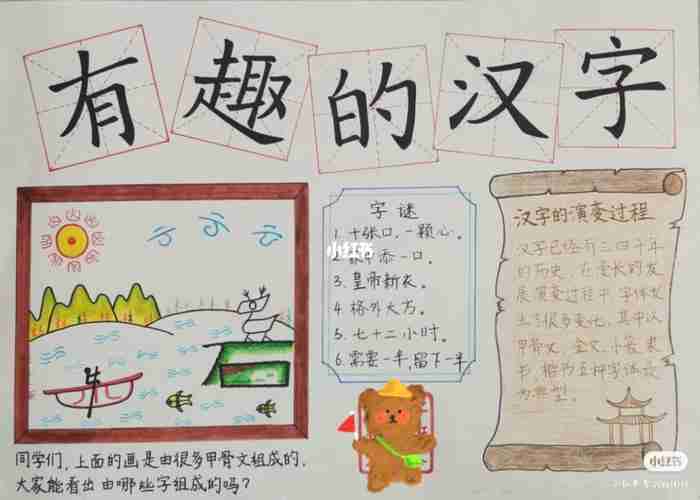 有趣的汉字
字谜
1. 十张口,一颗心。
小红书
添一口。
3. 皇帝新衣。
4. 格外大方。
5. 七十二小时。
6. 需要一半,留下一半
汉字的演变过程
汉字已经有三四千年
的历史,在漫长的发
展演变过程中,字体发
生了很多变化,其中以
甲骨文、金文、小篆、隶
书、楷书五种字体最
为典型。
同学们,上面的画是由很多甲骨文组成的,
大家能看出由哪些字组成的吗?
小红书